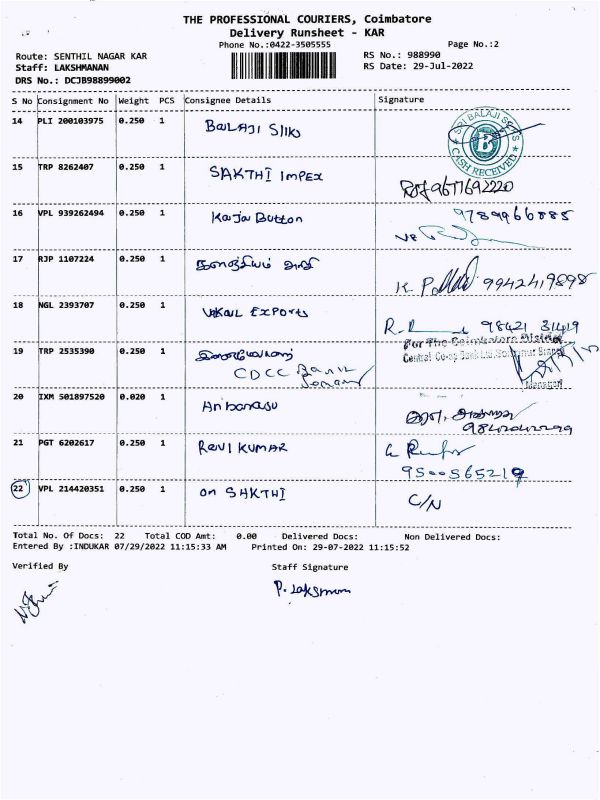 THE PROFESSIONAL COURIERS, Coimbatore
Delivery Runsheet - KAR
Phone No.:0422-3505555
Page No.:2
Route: SENTHIL NAGAR KAR
RS No.: 988990
Staff: LAKSHMANAN
RS Date: 29-Jul-2022
DRS No.: DCJB98899002
S No Consignment No Weight PCS Consignee Details Signature
14 PLI 200103975 0.250 1 BALAJI Silks
SRI BALAJI
CASH RECEIVED
B
15 TRP 8262407 0.250 1 SAKTHI IMPEX
9677692220
16 VPL 939262494 0.250 1 Karja Button 9789966885
17 RJP 1107224 0.250 1
9942419898
18 NGL 2393707 0.250 1 Exports
98421 31419
For The Coimbatore District
19 TRP 2535390 0.250 1
Central Co-op Bank Ltd.
CDCC Bank
Manager
20 IXM 501897520 0.020 1
21 PGT 6202617 0.250 1 RAVI KUMAR
9500565219
22 VPL 214420351 0.250 1 om SAKTHI C/N
Total No. Of Docs: 22 Total COD Amt: 0.00 Delivered Docs: Non Delivered Docs:
Entered By :INDUKAR 07/29/2022 11:15:33 AM Printed On: 29-07-2022 11:15:52
Verified By Staff Signature
P. Laksmam